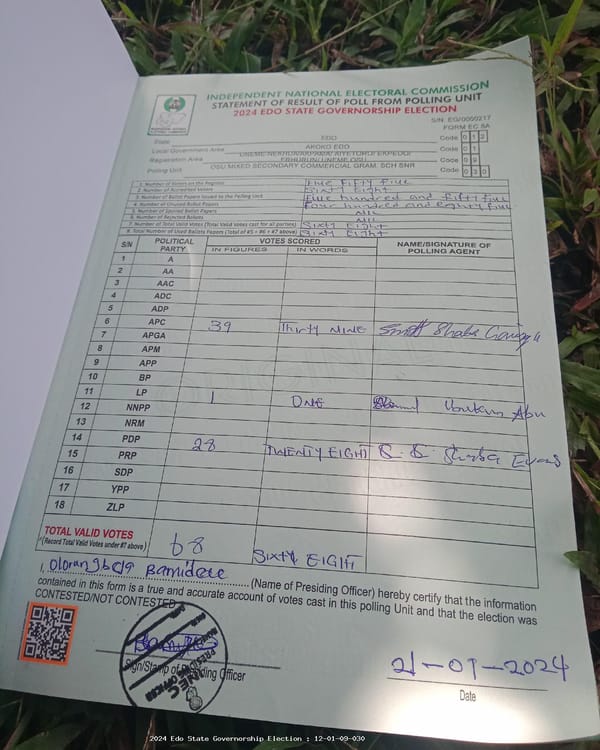 INDEPENDENT NATIONAL ELECTORAL COMMISSION
STATEMENT OF RESULT OF POLL FROM POLLING UNIT
2024 EDO STATE GOVERNORSHIP ELECTION
S/N. EG/0000217
FORM EC 8A
State EDO Code 0 1 2
Local Government Area AKOKO EDO Code 0 1
Registration Area Code 0 9
Polling Unit OSU MIXED SECONDARY COMMERCIAL GRAM. SCH SNR Code 0 3 0
1. Number of Voters on the Register Five Fifty Five
2. Number of Accredited Voters Sixty Eight
3. Number of Ballot Papers Issued to the Polling Unit Five hundred and fifty five
4. Number of Unused Ballot Papers Four hundred and eighty five
5. Number of Spoiled Ballot Papers NIL
6. Number of Rejected Ballots NIL
7. Number of Total Valid Votes (Total Valid Votes cast for all parties) Sixty Eight
8. Total Number of Used Ballots Papers (Total of #5 + #6 + #7 above) Sixty Eight
S/N POLITICAL PARTY VOTES SCORED NAME/SIGNATURE OF POLLING AGENT
IN FIGURES IN WORDS
1 A
2 AA
3 AAC
4 ADC
5 ADP
6 APC 39 Thirty NINE
7 APGA
8 APM
9 APP
10 BP
11 LP 1 ONE
12 NNPP
13 NRM
14 PDP 28 TWENTY EIGHT
15 PRP
16 SDP
17 YPP
18 ZLP
TOTAL VALID VOTES 68 SIXTY EIGHT
(Record Total Valid Votes under #7 above)
I, Bamidele (Name of Presiding Officer) hereby certify that the information
contained in this form is a true and accurate account of votes cast in this polling Unit and that the election was
CONTESTED/NOT CONTESTED
Sign/Stamp of Presiding Officer
21-09-2024
Date
2024 Edo State Governorship Election : 12-01-09-030